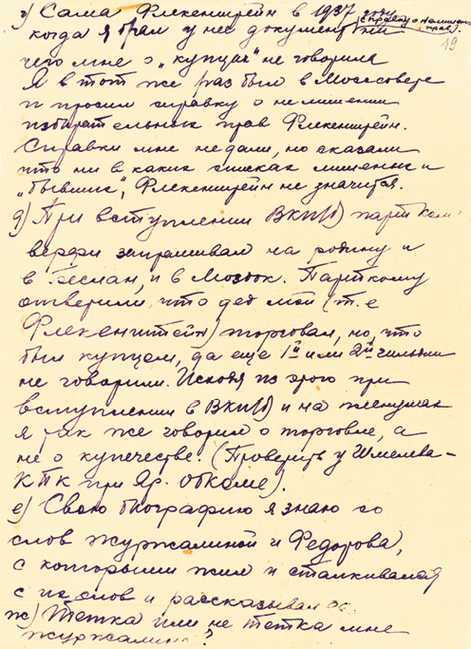 г) Сама Флекенштейн в 1937 году
(справку о нелишении прав).
когда я брал у нее документы ни
19
чего мне о „купцах" не говорила
Я в тот же раз был в Моссовете
и просил справку о нелишении
избирательных прав Флекенштейн.
Справки мне не дали, но сказали
что ни в каких списках лишенных и
„бывших", Флекенштейн не значится.
д) При вступлении ВКП(б) партком
верфи запрашивал на родину и
в Беслан, и в Моздок. Парткому
ответили, что дед мой (т.е
Флекенштейн) торговал, но, что
был купцем, да еще 1й или 2й гильдии
не говорили. Исходя из этого при
вступлении в ВКП(б) и на
я так же говорил о торговле, а
не о купечестве. (Проверить у Шмелева-
КПК при Яр. Обкоме).
е) Свою биографию я знаю со
слов Журжалиной и Федорова,
с которыми жил и сталкивался
с их слов и рассказывал ее.
ж) Тетка или не тетка мне
Журжалина?